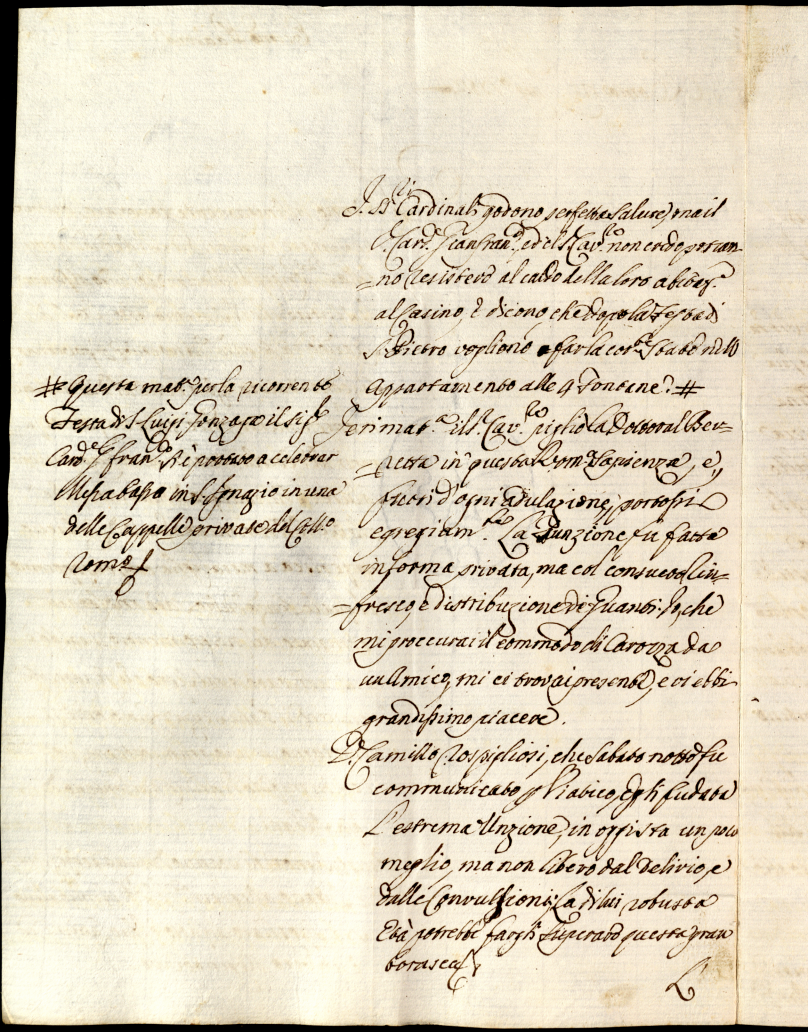 I SS.ri Cardinali godono perfetta Salute, ma il
S. Card. Gianfran.co, ed il S. Cav.ro non credo potran=
=no resistere al caldo della loro abitaz.e
al Casino, e dicono che dopo la Festa di
S. Pietro vogliono far la cor.te Stato nello
Appartamento alle 4 Fontane. #
Jeri mat.a il S. Cav.ro pigliò la Dottoral Ber=
=retta in questa Rom.a Sapienza, e,
fuori d'ogni adulazione, portossi
egregiam.te La Funzione fù fatta
in forma privata, ma col consueto Rin=
=fresco, e distribuzione de' Guanti. Io, che
mi proccurai il commodo di Carozza da
un Amico, mi ci trovai presente, e vi ebbi
grandissimo piacere.
D. Camillo Rospigliosi, che Sabato notte fu
communicato p Viatico, e gli fu data
L'estrema Unzione, in oggi sta un poco
meglio, ma non libero dal Delirio, e
dalle Convulsioni; La di lui robusta
Età potrebbe fargli superare questa gran
borasca.
L'
# Questa mat.a per la ricorrente
Festa di S. Luigi Gonzaga il Sig.r
Card.e G. Fran.co si è portato a celebrar
Messa bassa in S. Ignazio in una
delle Cappelle private del Coll.o
Rom.o